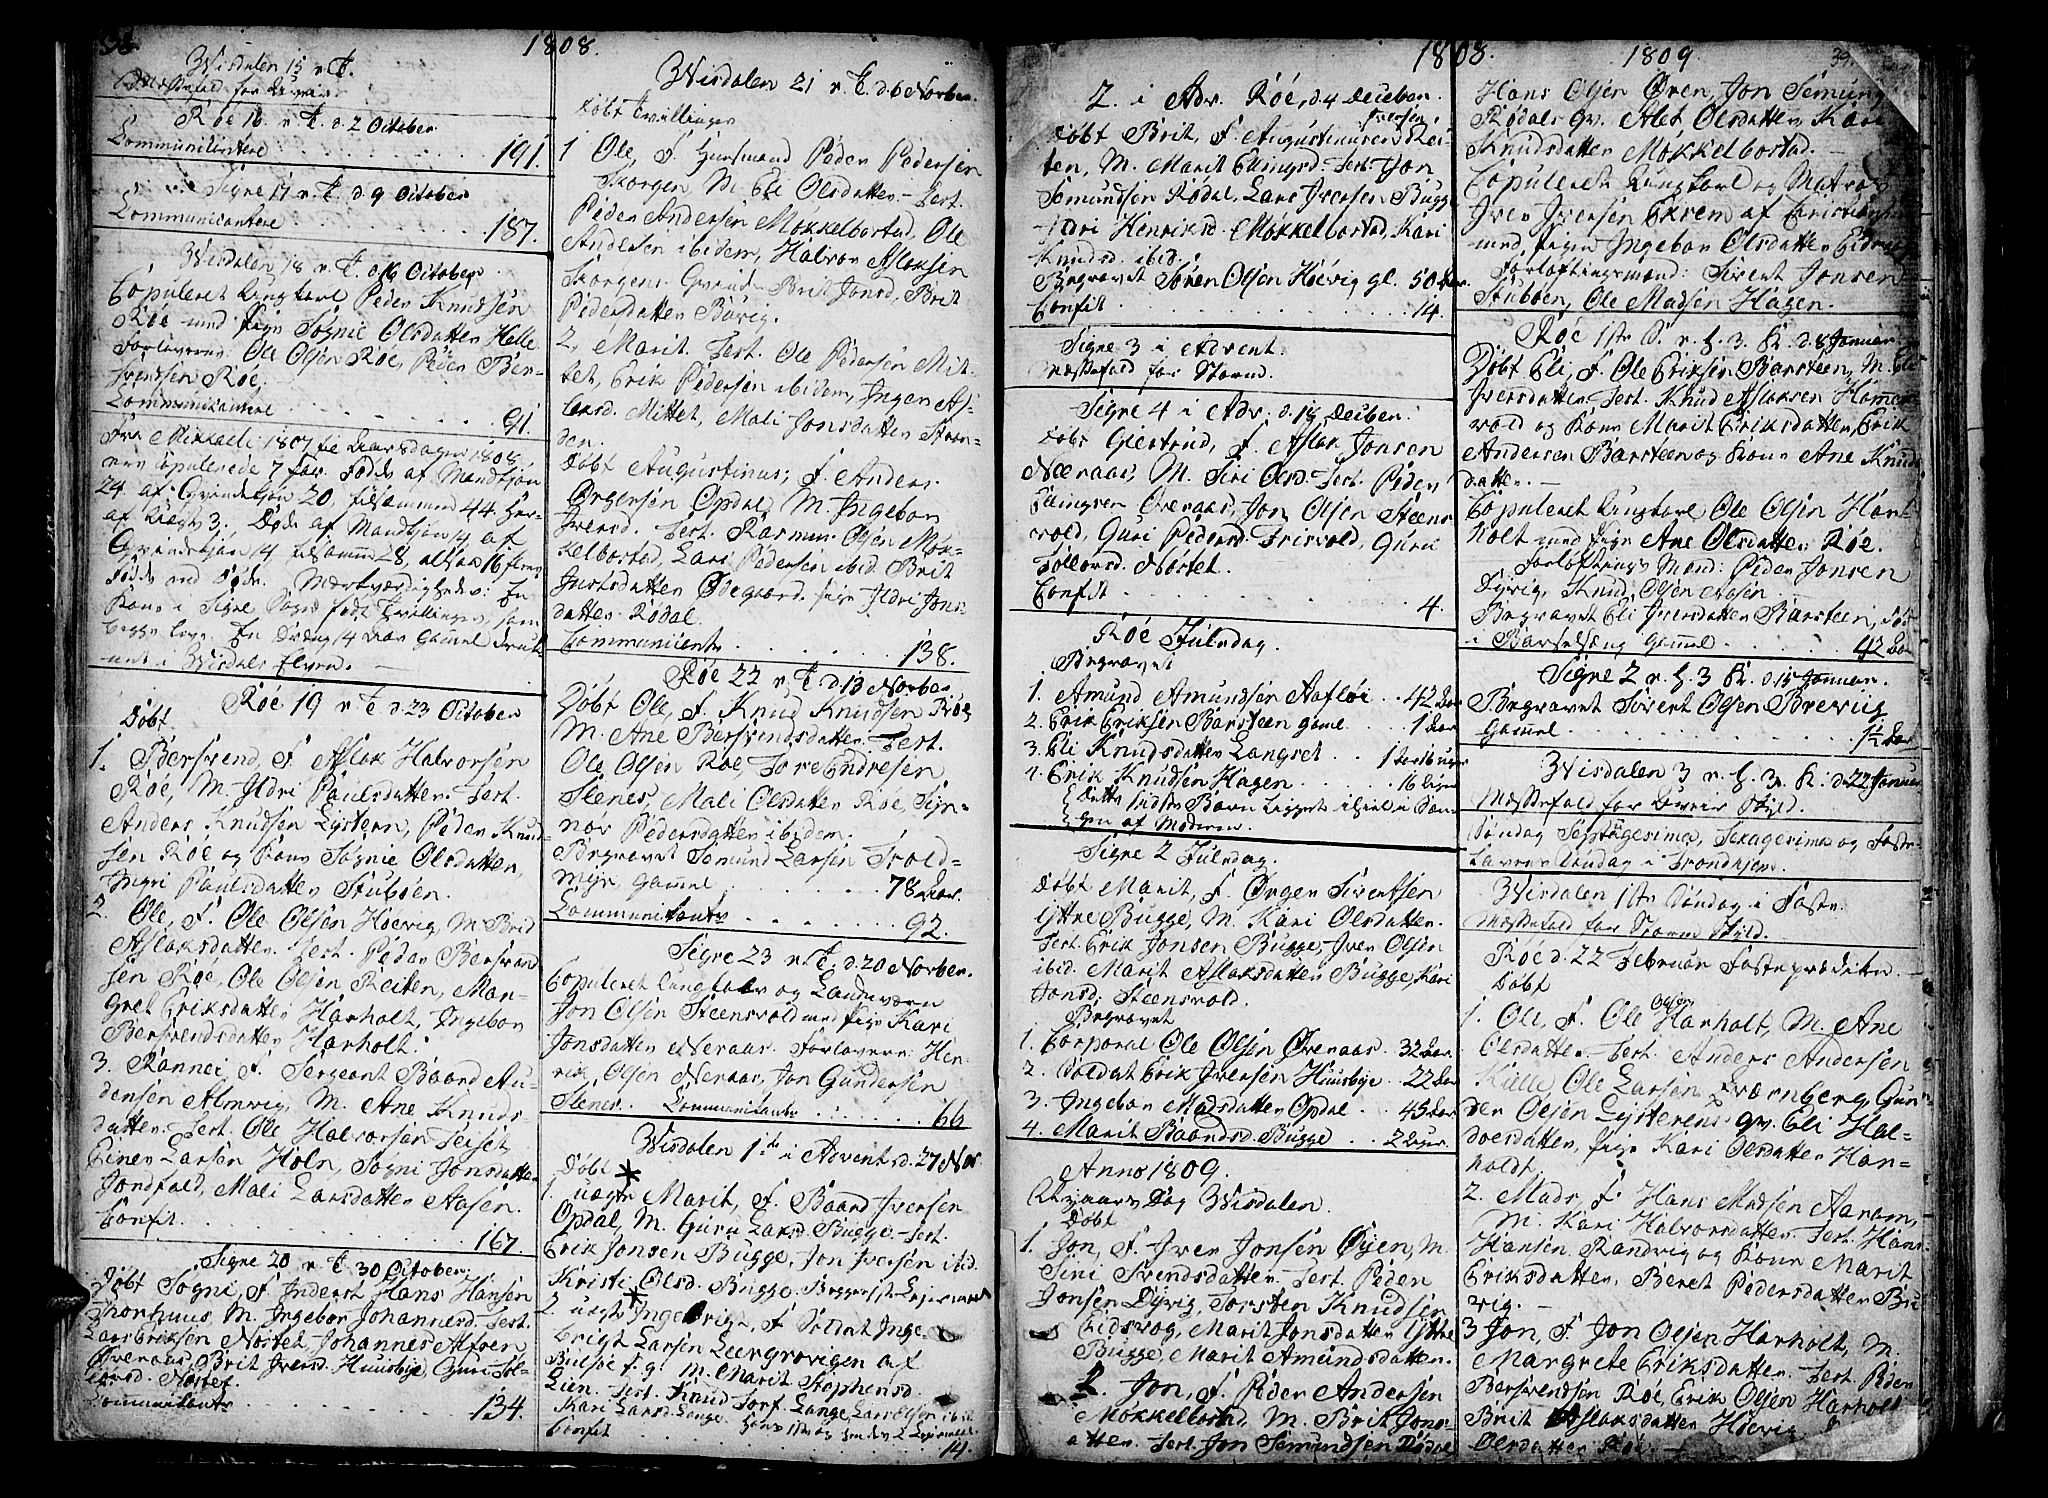 38.
1808.
Wisdalen 15 p. T.
Messefald for
Røe 16. p. T. d. 2 October
Communicantere 191.
Signe 17 p. T. d. 9 October
Communicantere 187.
Wisdalen 18 p. T. d. 16 October
Copuleret Ungkarl Peder Knudsen
Røe med Pige Sognie Olsdatter Helle
Forlovere: Ole Olsen Røe, Peder Ber-
svendsen Røe,
Communicantere 91.
Fra Mikkeli 1807 til Aarsdagen 1808
ere Copulerede 7 Par. Fødde af Mandkjøn
24 af Qvindekjøn 20, tilsammen 44. Her-
af Uægte 3. Døde af Mandkjøn 14 af
Qvindekjøn 14 tilsamm 28, altsaa 16 flere
Fødde end Døde. Mærkværdigheder: En
Kone i Signe Sogn fødte Tvillinger, som
begge leve. En Dreng 14 Aar gammel druk-
net i Wisdals Elven.
Røe 19 p. T. d. 23 October
Døbt
1. Bersvend, F. Aslak Halvorsen
Røe, M. Ildri Paulsdatter. Test.
Anders Knudsen Lystern, Peder Knud-
sen Røe og Kone Sognie Olsdatter,
Ingri Paulsdatter Stubøen.
2. Ole, F. Ole Olsen Hoevig, M. Brit
Aslaksdatter. Test. Peder Bersvend
sen Røe, Ole Olsen Reiten, Mar-
gret Eriksdatter Harholt, Ingebor
Bersvendsdatter Harholt.
3. Rannei, F. Sergeant Baard An-
dersen Almvig, M. Ane Knuds-
datter. Test. Ole Halvorsen Seiset,
Einer Larsen Holn, Sogni Jonsdatter
Jondfalt, Mali Larsdatter Aasen.
Confit. 167.
Signe 20 p. T. 30 October.
Døbt Sogni, F. Inderst Hans Hansen
Thorhuus, M. Ingebor Johannesd. Test.
Lars Eriksen Nostet, Johannes
Øveraas, Brit Iversd. Huusbye, Guri Tol-
lovsd. Nostet.
Communicants 134.
Wisdalen 21 p. T. d. 6 Novbr.
Døbt Tvillinger
1 Ole, F. Huusmand Peder Pedersen
Skorgen, M. Eli Olsdatter. Test.
Peder Andersen Møkkelbostad, Ole
Andersen ibidem, Halvor Aslaksen
Skorgen, Brit Jonsd, Brit
Pedersdatter Bøvig.
2, Marit. Test. Ole Pedersen Mit-
tet, Erik Pedersen ibidem, Inger As-
laksd. Mittet, Mali Jonsdatter Stran-
den.
Døbt Augustinus, F. Anders
Ørgersen Opdal, M. Ingebor
Iversd. Test. Rasmus Olsen Møk-
kelbostad, Lars Pedersen ibid. Brit
Justsdatter Ødegaard. Pige Ildri Jons-
datter Rødal.
Communicants 138.
Røe 22 p. T. d. 13 Novbr.
Døbt Ole, F. Knud Knudsen Røe
M. Ane Bersvendsdatter. Test.
Ole Olsen Røe, Tore Endresen
Slenes, Mali Olsdatter Røe, Sign-
nor Pedersdatter ibidem.
Begravet Semund Larsen Trold-
myr, gammel 78 Aar.
Communicants 92.
Signe 23 p. T. d. 20 Novber.
Copuleret Ungkarl og Landeværn
Jon Olsen Steensvold med Pige Kari
Jonsdatter Neraas. Forlovere: Hen-
rik Olsen Neraas, Jon Gundersen
Slenes. Communicants 66
Wisdalen 1ste i Advent d. 27 Nov.
Døbt
1. uægte Marit, F. Baard Iversen
Opdal, M. Guru Larsd. Bugge. Test.
Erik Jonsen Bugge, Jon Iversen ibid.
Kristi Olsd. Bugge. Begges 1ste Leiermaal
2. uægte Ingebrigt, F. Soldat Inge-
brigt Larsen Leergrovigen af
M. Marit Stephensd.
Lien. Test. Knud Lange, Lars Olsen ibid.
Kari Larsd. Lange.
Confit 14.
1808.
1809
39.
2. i Adv. Røe, d. 4 Decebr.
Iversen
Døbt Brit, F. Augustinus Rei-
ten, M. Marit Ellingsd. Test. Jon
Semundsen Rødal, Lars Iversen Bugge
Ildri Henriksd. Møkkelbostad, Kari
Knudsd. ibid.
Begravet Søren Olsen Hoevig gl. 50 Aar
Confit 14.
Signe 3 i Advent.
Messefald for Storm.
Signe 4 i Adv. d. 18 Decebr.
Døbt Giertrud, F. Aslak Jonsen
Neeraas, M. Siri Olsd. Test. Peder
Ellingsen Øveraas, Jon Olsen Steens-
vold, Guri Pedersd. Frisvold, Guru
Tollovsd. Nostet.
Confit 4.
Røe Juledag.
Begravet
1. Amund Amundsen Aafløi 42 Aar
2. Erik Eriksen Barsteen gaml. 1 Aar
3. Eli Knudsdatter Langset
4. Erik Knudsen Hagen 16 Uger
Dette sidste Barn ligget ihjel i Sen-
gen af Moderen.
Signe 2 Juledag.
Døbt Marit, F. Ørger Siversen
Yttre Bugge, M. Kari Olsdatter.
Test. Erik Jonsen Bugge, Iver Olsen
ibid. Marit Aslaksdatter Bugge, Kari
Jonsd. Steensvold.
Begravet
1. Corporal Ole Olsen Øveraas 32 Aar.
2. Soldat Erik Iversen Huusbye 22 Aar
3. Ingebor Madsdatter Opdal 45 Aar
4. Marit Baardsd. Bugge 2 Aar.
Anno 1809.
Nyaars Dag Wisdalen.
Døbt
1. Jon, F. Iver Jonsen Øyen, M.
Siri Svendsdatter. Test. Peder
Jonsen Dyrvig, Torsten Knudsen
Eidsvog, Marit Jonsdatter Yttre
Bugge, Marit Amundsdatter.
2. Jon, F. Peder Andersen
Møkkelbostad, M. Brit Jons-
datter. Test. Jon Semundsen Rødal
Hans Olsen Øren, Jon Semund
Rødals Qv. Alet Olsdatter, Kari
Knudsdatter Møkkelbostad.
Copuleret Ungkarl og Matros
Iver Iversen Ekrem af Christiansund
med Pige Ingebor Olsdatter Eidsvog
Forløftningsmænd: Sivert Jonsen
Stubøen, Ole Madsen Hagen.
Røe 1ste S. p. H. 3. K. d. 8 Januar
Døbt Eli, F. Ole Eriksen Barsteen, M. Eli
Iversdatter. Test. Knud Aslaksen Homer-
vold og Kone Marit Eriksdatter, Erik
Andersen Barsteen og Kone Ane Knuds-
datter.
Copuleret Ungkarl Ole Olsen Har-
holt med Pige Ane Olsdatter Røe.
Forløftnings Mænd: Peder Jonsen
Dyrvig, Knud Olsen Aasen
Begravet Eli Iversdatter Barsteen, død
i Barselseng gammel 42 Aar
Signe 2 p. H. 3 K. d. 15 Januar.
Begravet Sivert Olsen Brevig
Gammel 1½ Aar
Wisdalen 3 p. H. 3. K. d. 22 Januar
Messefald for Uveir Skyld.
Søndag Septuagesima, Sexagesima og Faste-
lavns Søndag i Trondhjem.
Wisdalen 1ste Søndag i Faste
Messefald for Storm Skyld.
Røe d. 22 Februar Fasteprædiken.
Døbt
Olsen
1. Ole, F. Ole Harholt, M. Ane
Olsdatter. Test. Anders Andersen
Kulle, Ole Larsen Kværnberg, Gun-
der Olsen Lysterens Qv. Eli Hal-
vorsdatter, Pige Kari Olsdatter Har-
holdt.
2. Mads, F. Hans Madsen Aaram,
M. Kari Halvorsdatter. Test. Hans
Hansen Randvig og Kone Marit
Eriksdatter, Beret Pedersdatter Bu-
vig.
3 Jon, F. Jon Olsen Harholt, M.
Margrete Eriksdatter. Test. Peder
Bersvendsen Røe, Erik Olsen Harholt
Brit Aslaksdatter Hoevig
Olsdatter Røe.